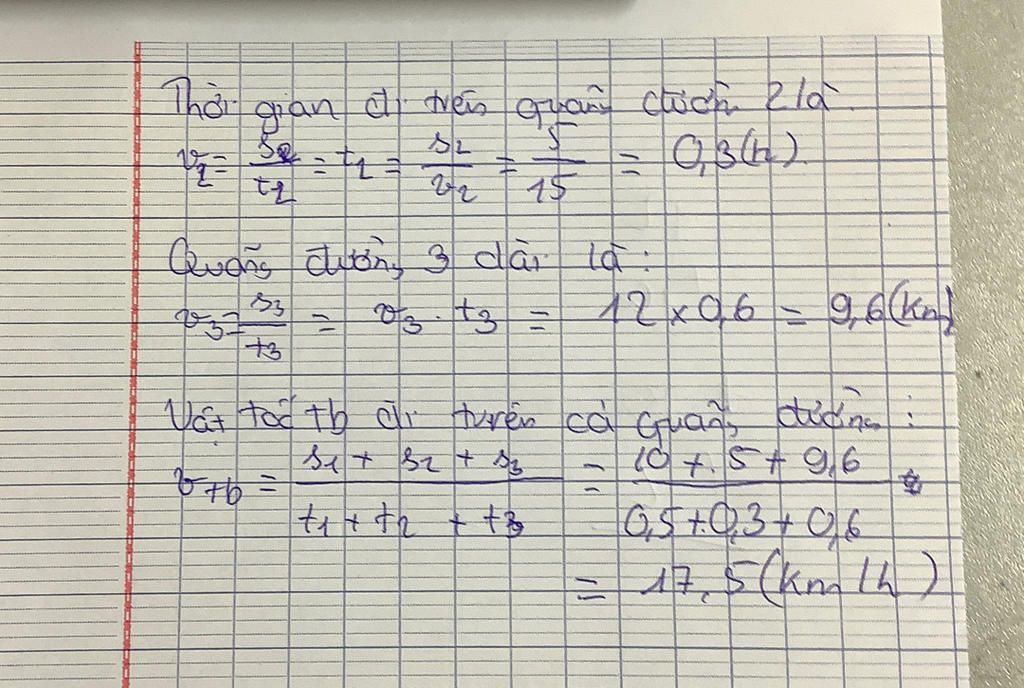 Thời gian đi trên quãng đường 2 là
v₂ = s₂/t₂ = t₂ = s₂/v₂ = 5/15 = 0,3(h)
Quãng đường 3 dài là:
v₃ = s₃/t₃ = v₃ . t₃ = 12 × 0,6 = 9,6(km)
Vât tốc tb đi trên cả quãng đường :
v_tb = (s₁ + s₂ + s₃)/(t₁ + t₂ + t₃) = (10 + 5 + 9,6)/(0,5 + 0,3 + 0,6)
= 17,5(km/h)